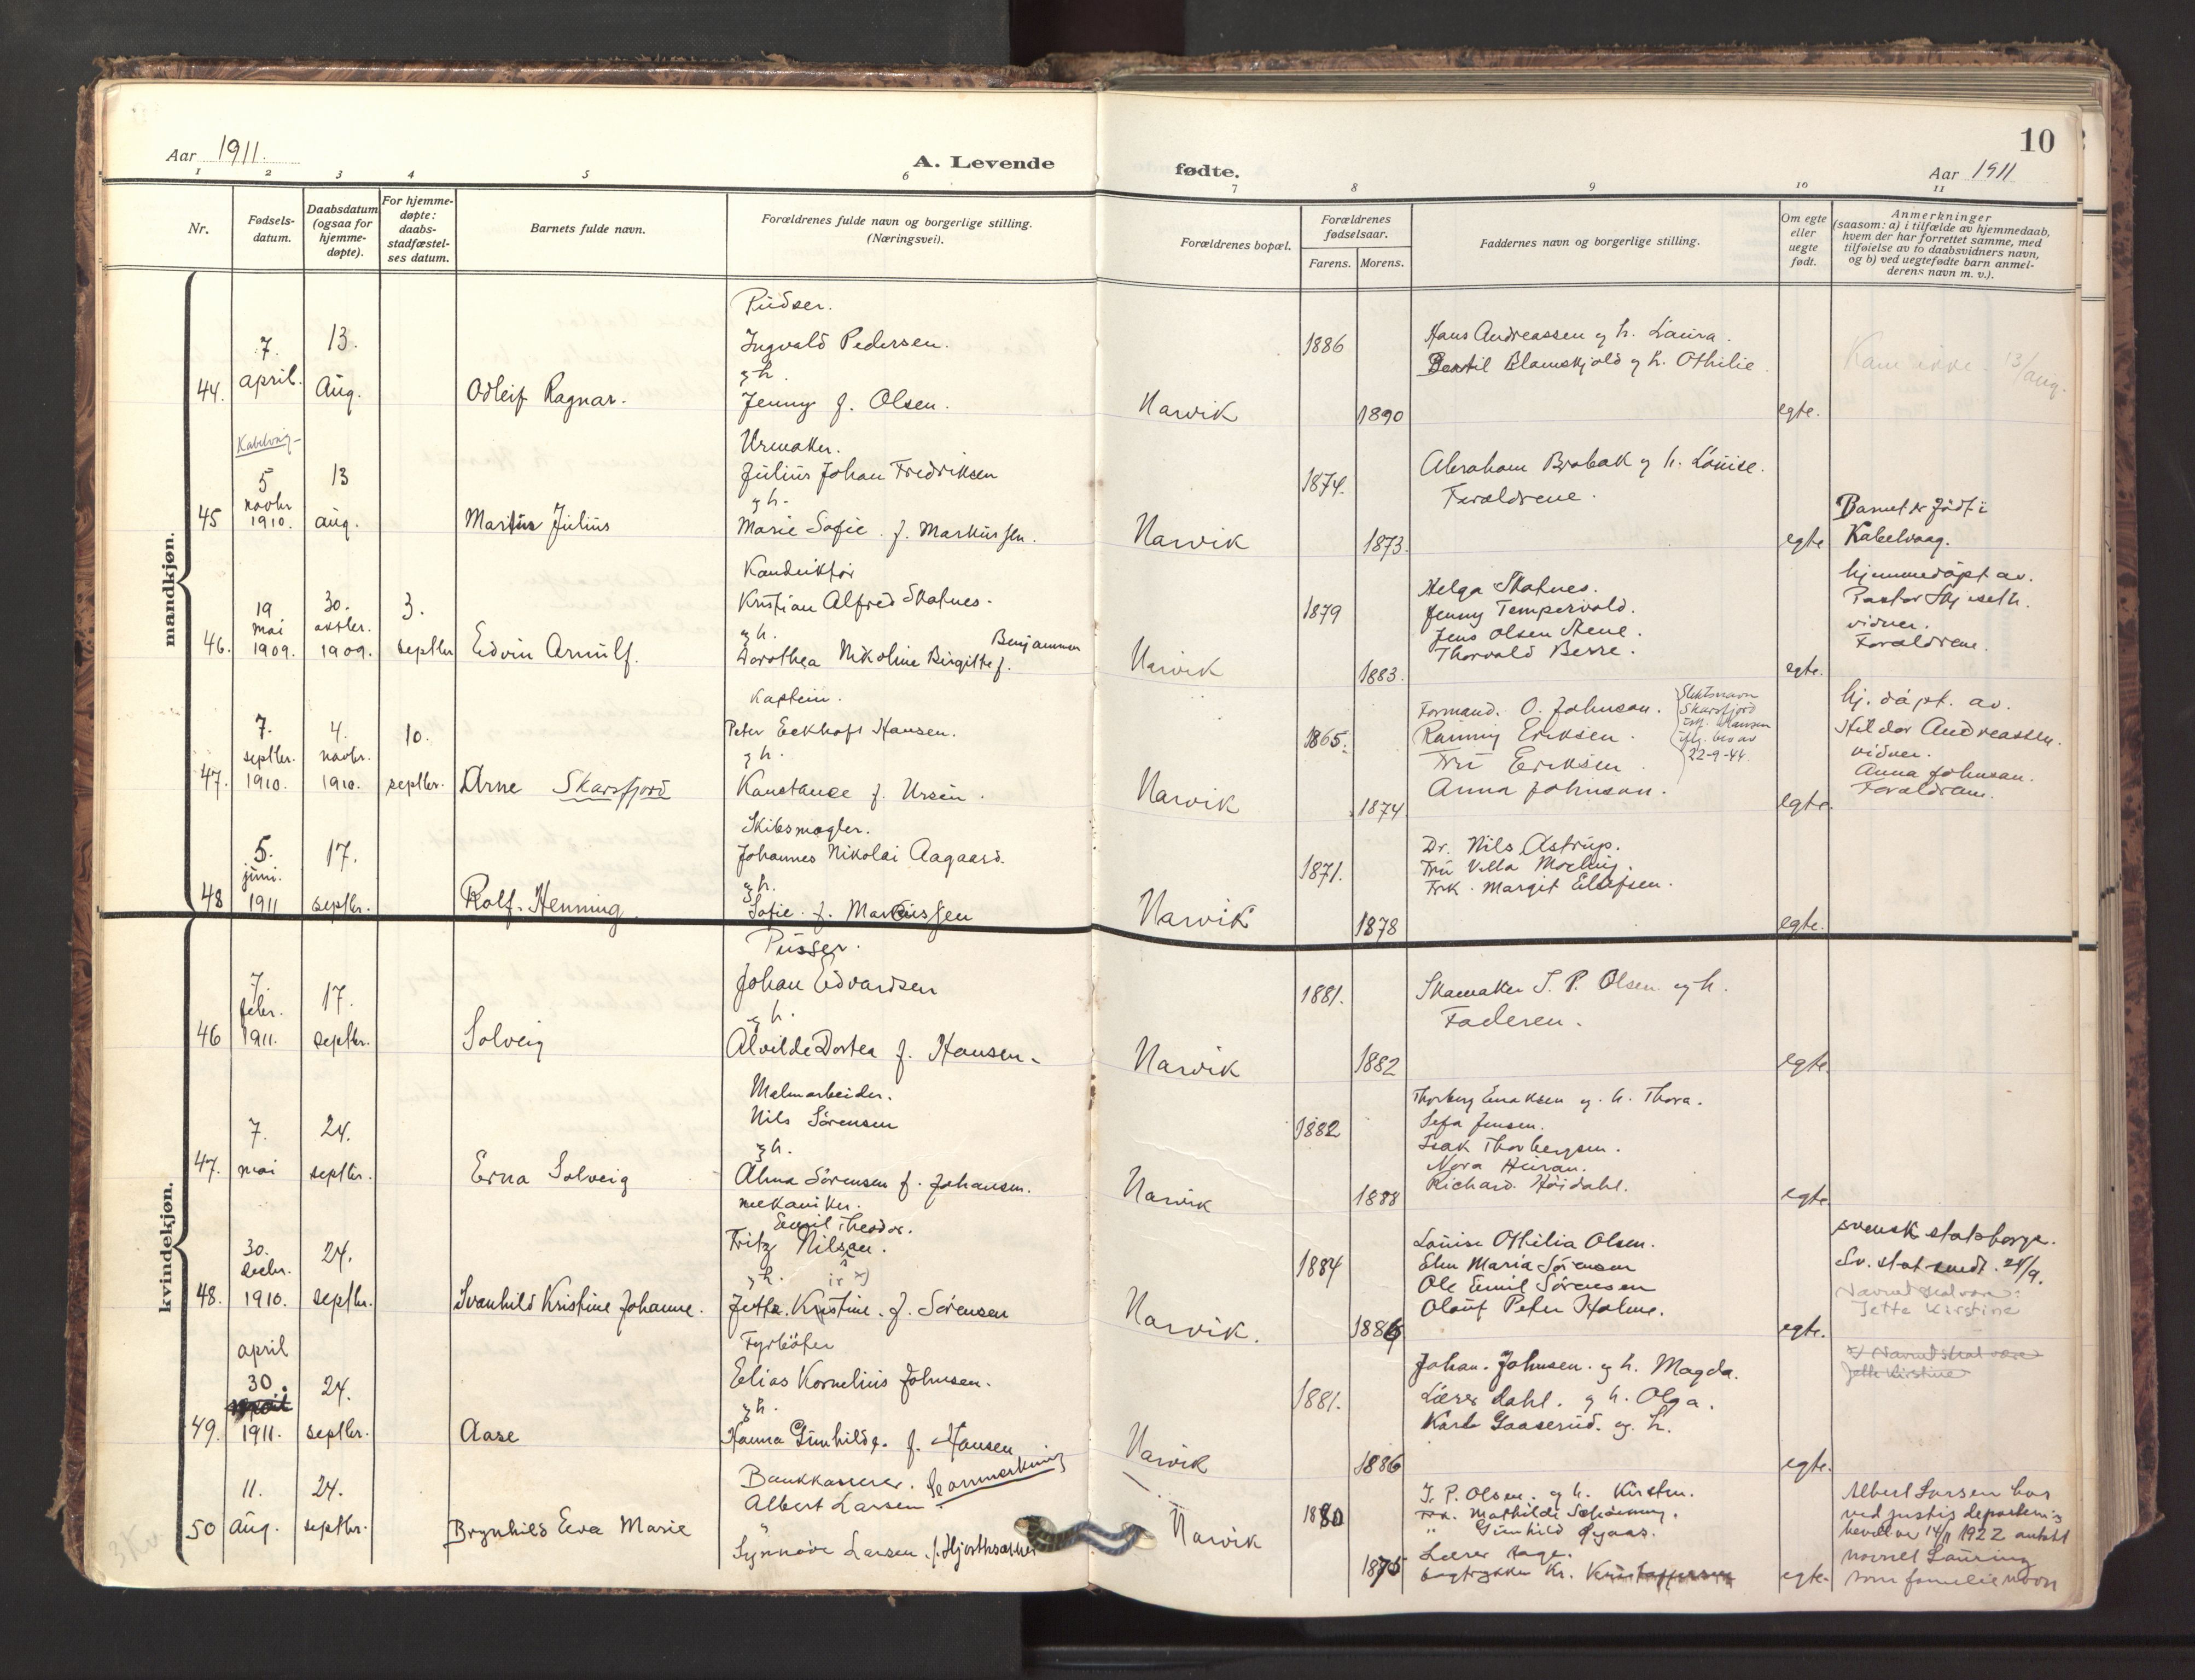 Aar 1911.
A. Levende
fødte.
10
Aar 1911
1 2 3 4 5 6 7 8 9 10 11
Nr.
Fødsels-
datum.
Daabsdatum
(ogsaa for
hjemme-
døpte).
For hjemme-
døpte:
daabs-
stadfæstel-
ses datum.
Barnets fulde navn.
Forældrenes fulde navn og borgerlige stilling.
(Næringsvei).
Forældrenes bopæl.
Forældrenes
fødselsaar.
Farens. Morens.
Faddernes navn og borgerlige stilling.
Om egte
eller
uegte
født.
Anmerkninger
(saasom: a) i tilfælde av hjemmedaab,
hvem der har forrettet samme, med
tilføielse av to daabsvidners navn,
og b) ved uegtefødte barn anmel-
derens navn m. v.).
mandkjøn.
44.
7.
april.
13.
Aug.
Odleif Ragnar.
Pudser.
Ingvald Pedersen.
g h.
Jenny f. Olsen.
Narvik
1886
1890
Hans Andreassen g h. Laura.
Bertil Blomskjold g h. Othilie
egte.
Kom ikke 13/aug.
45
Kabelvåg-
5
novbr
1910.
13
aug.
Martin Julius
Urmaker.
Julius Johan Fredriksen
g h.
Marie Sofie. f. Markussen.
Narvik
1874.
1873.
Abraham Brobak g h. Louise.
Forældrene.
egte
Barnet er födt i
Kabelvaag.
46.
19
mai
1909.
30.
oktbr.
1909.
3.
septbr
Edvin Arnulf.
Konduktør
Kristian Alfred Skatnes.
g h.
Benjaminsen
Dorothea Nikoline Birgitte f.
Narvik
1879
1883.
Helga Skatnes.
Jenny Tempervold.
Jens Olsen Stene.
Thorvald Berre.
egte.
hjemmedöpt av.
Pastor
vidner.
Forældrene.
47.
7.
septbr.
1910.
4.
novbr.
1910.
10.
septbr.
Arne Skarsfjord
Kaptein.
Peter Eckhoff Hansen.
g h.
Konstance f. Ursin.
Narvik
1865.
1874
Formand. O. Johnson.
Ranny Eriksen.
Fru Eriksen.
Anna Johnson.
Slektsnavn
Skarsfjord
Hansen
22-9-44.
egte.
hj. döpt. av.
Hildor Andreassen.
vidner.
Anna Johnson.
Forældrene.
48
5.
juni.
1911
17.
septbr.
Rolf. Henning
Skibsmægler.
Johannes Nikolai Aagaard.
g h.
Sofie. f. Marcussen
Narvik
1871.
1878
Dr. Nils Astrup.
Fru Villa
Frk. Margit Ellefsen.
egte.
kvindekjøn.
46
7.
febr.
1911.
17.
septbr.
Solveig
Pusser.
Johan Edvardsen
g h.
Alvilde Dortea f. Hansen.
Narvik
1881.
1882
Skomaker J. P. Olsen. og h.
Faderen.
egte.
47.
7.
mai
24.
septbr.
Erna Solveig
Malmarbeider.
Nils Sörensen
g h.
Alma Sörensen f. Johansen.
Narvik
1882
1888
Thorberg Enoksen g. h. Thora.
Sefa Jensen.
Isak Thorbergsen.
Nora
Richard Höidahl.
egte
48.
30.
decbr.
1910.
24.
septbr.
Svanhild Kristine Johanne.
mekaniker.
Emil Theodor.
Fritz Nilsen.
g h. ir x)
Jette. Kristine. f. Sörensen
Narvik.
1884
1886
Louise Othilia Olsen.
Elen Maria Sörensen
Ole Emil Sörensen
Olouf Peter Holme.
egte.
svensk statsborger.
Sv. stat medt. 28/9.
Navnet skal være:
Jette Kirstine
x) Navnet skal være
Jette Kirstine
49.
april
30.
april
1911.
24.
septbr.
Aase
Fyrböter
Elias Kornelius Johnsen.
g h.
Hanna Gunhilde. f. Hansen
Narvik
1881.
1886
Johan. Johnsen. g h. Magda.
Lærer Dahl. g h. Olga.
Karl Gaaserud. og. h.
egte.
50
11.
Aug.
24.
septbr.
Brynhild Eva Marie
Bankkasserer. Se anmerkning
Albert Larsen.
"
Synnöve Larsen. f. Hjorthsæther
Narvik
1880
1875
J. P. Olsen. og h. Kirsten.
Frk. Mathilde
" Gunhild
Lærer
Kr. Kristoffersen
egte.
Albert Larsen har
ved justis departem.s
bevil av 14/1 1922 antatt
navnet Lauring
som familie navn